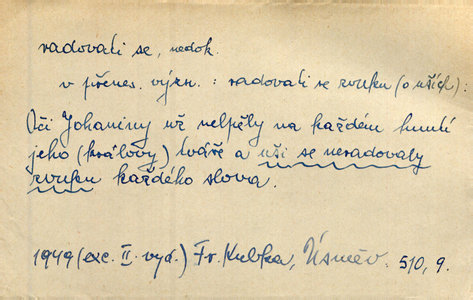 radovati se, nedok.
v přenes. význ. : radovati se zvuku (o uších) :
Oči Johaniny už nelpěly na každém hnutí
jeho (královy) tváře a uši se neradovaly
zvuku každého slova.
1949 (exc. II. vyd.) Fr. Kubka, Úsměv. 510, 9.